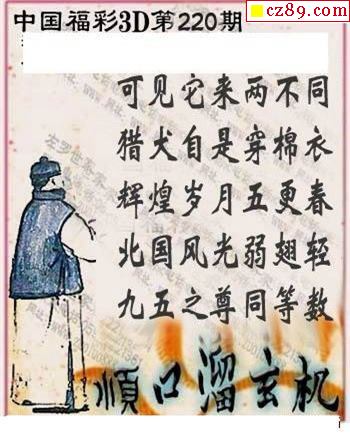 cz89.com
中国福彩3D第220期
可见它来两不同
猎犬自是穿棉衣
辉煌岁月五更春
北国风光弱翅轻
九五之尊同等数
顺口溜玄机